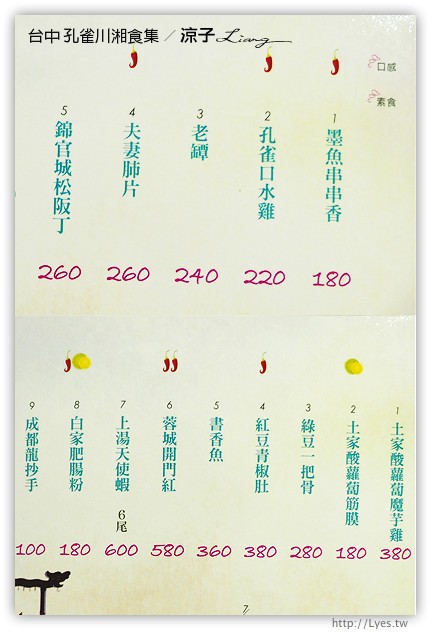 台中 孔雀川湘食集 / 涼子 Liang
口感
素食
1 墨魚串串香 180
2 孔雀口水雞 220
3 老罈 240
4 夫妻肺片 260
5 錦官城松阪丁 260
1 土家酸蘿蔔魔芋雞 380
2 土家酸蘿蔔筋膜 180
3 綠豆一把骨 280
4 紅豆青椒肚 380
5 書香魚 360
6 蓉城開門紅 580
7 上湯天使蝦 6尾 600
8 白家肥腸粉 180
9 成都龍抄手 100
7
http://Lyes.tw